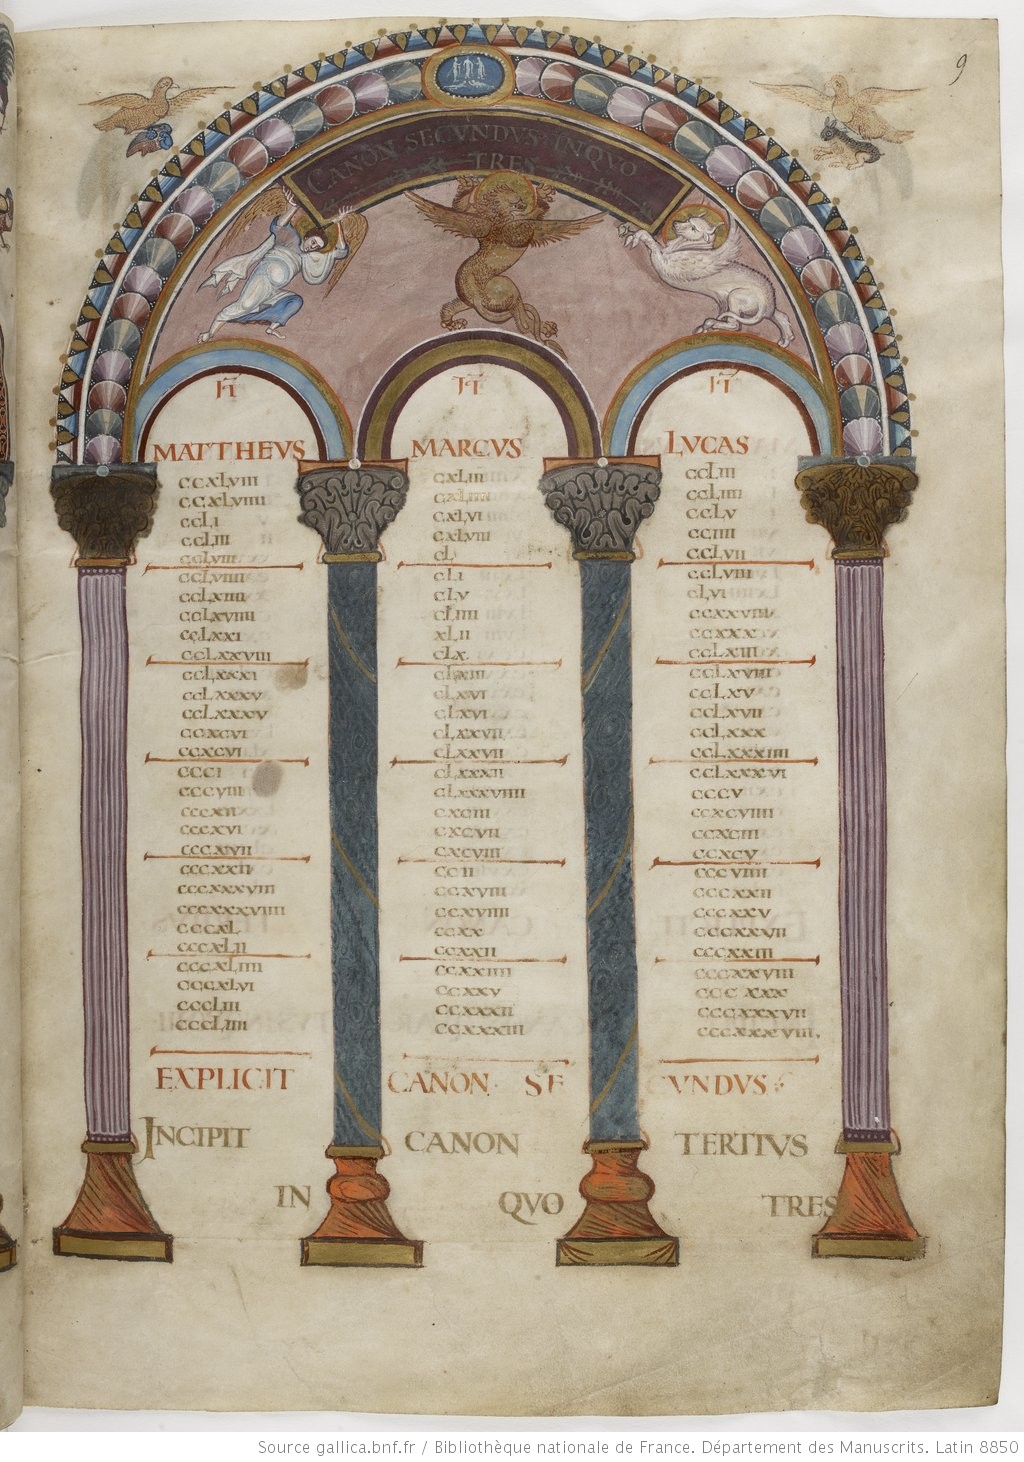 9
CANON SECVNDVS INQVO
TRES
II
MATTHEVS
ccxLviii
ccxLviiii
ccLi
ccLiii
ccLviii
ccLviiii
ccLxiiii
ccLxviiii
ccLxxi
ccLxxviii
ccLxxxi
ccLxxxv
ccLxxxv
ccxcvi
ccxcvi
ccci
cccviii
cccxii
cccxvi
cccxvii
cccxxii
cccxxxviii
cccxxxviiii
cccxL
cccxLii
cccxLiiii
cccxLvi
cccLiii
cccLiiii
II
MARCVS
cxLiii
cxLiiii
cxLvi
cxLviii
cL
cLi
cLv
cLiiii
xLii
cLx.
cLxiii
cLxvi
cLxvi
cLxxvii
cLxxvii
cLxxxii
cLxxxviiii
cxciii
cxcvii
cxcviii
ccii
ccxviii
ccxviiii
ccxx
ccxxii
ccxxiiii
ccxxv
ccxxxii
ccxxxiii
II
LVCAS
ccLiii
ccLiiii
ccLv
cciiii
ccLvii
ccLviiii
cLvi
ccxxviiii
ccxxx
ccLxiii
ccLxviii
ccLxv
ccLxvii
ccLxxx
ccLxxxiiii
ccLxxxvi
cccv
ccxcviiii
ccxciii
ccxcv
cccviiii
cccxxii
cccxxv
cccxxvii
cccxxiii
cccxxviii
cccxxx
cccxxxvii
cccxxxviii.
EXPLICIT CANON SECVNDVS
INCIPIT CANON TERTIVS
IN QVO TRES
Source gallica.bnf.fr / Bibliothèque nationale de France. Département des Manuscrits. Latin 8850